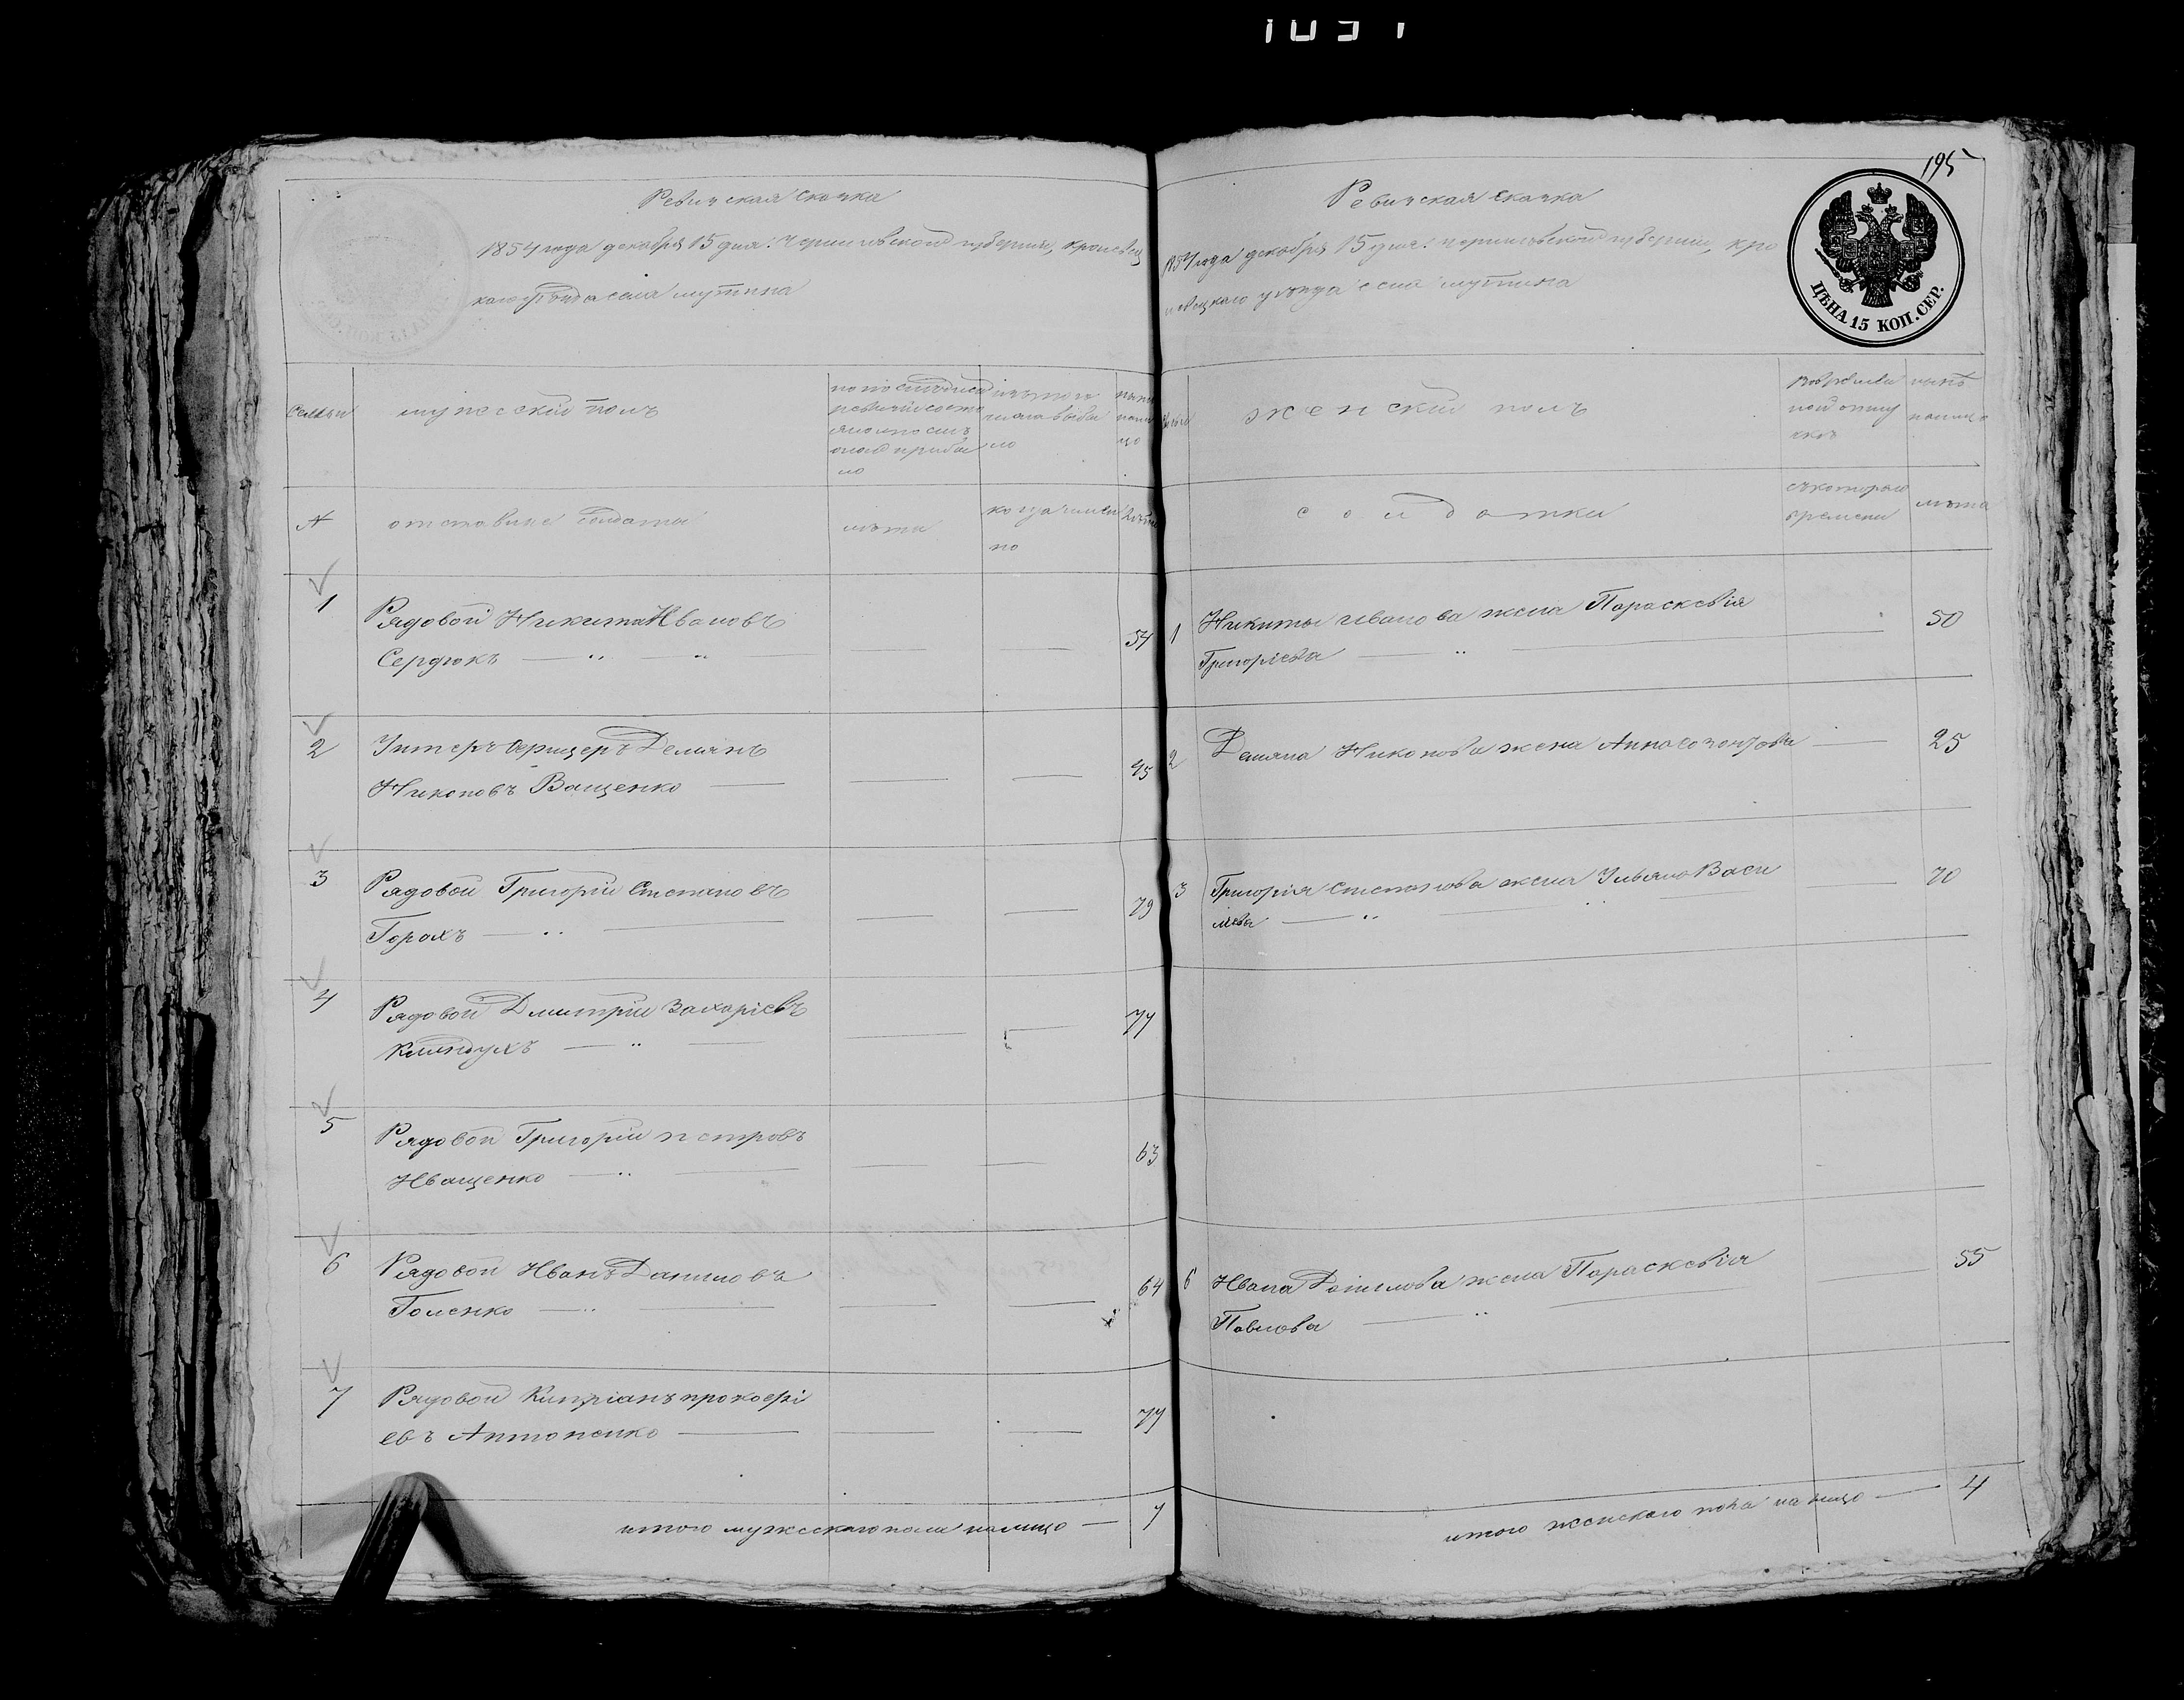 195
Ревизская сказка
1854 года декабря 15 дня: черниговской губернии, кролевец
каго уѣзда села мутина
семьи
мужеский полъ
по последней
ревизии состо
яло и после
оной прибы
ло
изъ того
числа выбы
ло
ныне
нали
цо
№
отставные солдаты
лѣта
когда имен
но
лѣта
1
Рядовой Никита Ивановъ
Сердюкъ
54
2
Унтеръ офицеръ Демянъ
Никоновъ Ващенко
45
3
Рядовой Григорій Степановъ
Горохъ
79
4
Рядовой Дмитрій Захаріевъ
Клиндухъ
77
5
Рядовой Григорій петровъ
Иващенко
63
6
Рядовой Иванъ Даниловъ
Голенко
64
7
Рядовой Кипріанъ прокофі
евъ Антоненко
77
итого мужескаго пола налицо 7
Ревизская сказка
1854 года декабря 15 дня: черниговской губернии, кро
левецкаго уѣзда села мутина
ЦѢНА 15 КОП. СЕР.
женский полъ
во временной
отлу
чке
ныне
налицо
солдатки
съ котораго
времени
лѣта
1
Никиты иванова жена Параскевія
Григоріева
50
2
Демяна Никонова жена Анна
25
3
Григорія Степанова жена Ульяна Васи
лева
70
6
Ивана Данилова жена Параскевія
Павлова
55
итого женскаго пола налицо 4